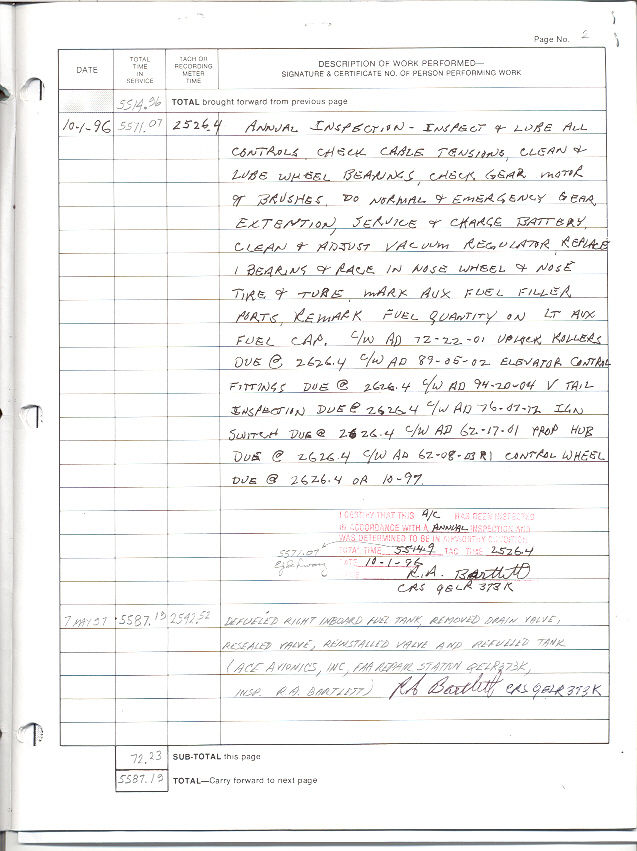 Page No. 2
DATE
TOTAL TIME IN SERVICE
TACH OR RECORDING METER TIME
DESCRIPTION OF WORK PERFORMED—
SIGNATURE & CERTIFICATE NO. OF PERSON PERFORMING WORK
5514.96 TOTAL brought forward from previous page
10-1-96 5571.07 2526.4 ANNUAL INSPECTION - INSPECT & LUBE ALL
CONTROLS, CHECK CABLE TENSIONS, CLEAN &
LUBE WHEEL BEARINGS, CHECK GEAR MOTOR
& BRUSHES, DO NORMAL & EMERGENCY GEAR
EXTENTION, SERVICE & CHARGE BATTERY,
CLEAN & ADJUST VACUUM REGULATOR, REPLACE
1 BEARING & RACE IN NOSE WHEEL & NOSE
TIRE & TUBE, MARK AUX FUEL FILLER
PORTS, REMARK FUEL QUANTITY ON LT AUX
FUEL CAP. C/W AD 72-22-01 UPLOCK ROLLERS
DUE @ 2626.4 C/W AD 89-05-02 ELEVATOR CONTROL
FITTINGS DUE @ 2626.4 C/W AD 94-20-04 V TAIL
INSPECTION DUE @ 2626.4 C/W AD 76-07-12 IGN
SWITCH DUE @ 2626.4 C/W AD 62-17-01 PROP HUB
DUE @ 2626.4 C/W AD 62-08-03R1 CONTROL WHEEL
DUE @ 2626.4 OR 10-97.
I CERTIFY THAT THIS A/C HAS BEEN INSPECTED
IN ACCORDANCE WITH A ANNUAL INSPECTION AND
WAS DETERMINED TO BE IN AIRWORTHY CONDITION
5571.07 TOTAL TIME 5514.9 TAC TIME 2526.4
DATE 10-1-96
R.A. Bartlett
CRS QELR 373K
7 MAY 97 5587.19 2542.52 DEFUELED RIGHT INBOARD FUEL TANK, REMOVED DRAIN VALVE,
RESEALED VALVE, REINSTALLED VALVE AND REFUELED TANK
(ACE AVIONICS, INC, FAA REPAIR STATION QELR373K,
INSP. R.A. BARTLETT) RA Bartlett CRS QELR 373K
72.23 SUB-TOTAL this page
5587.19 TOTAL—Carry forward to next page